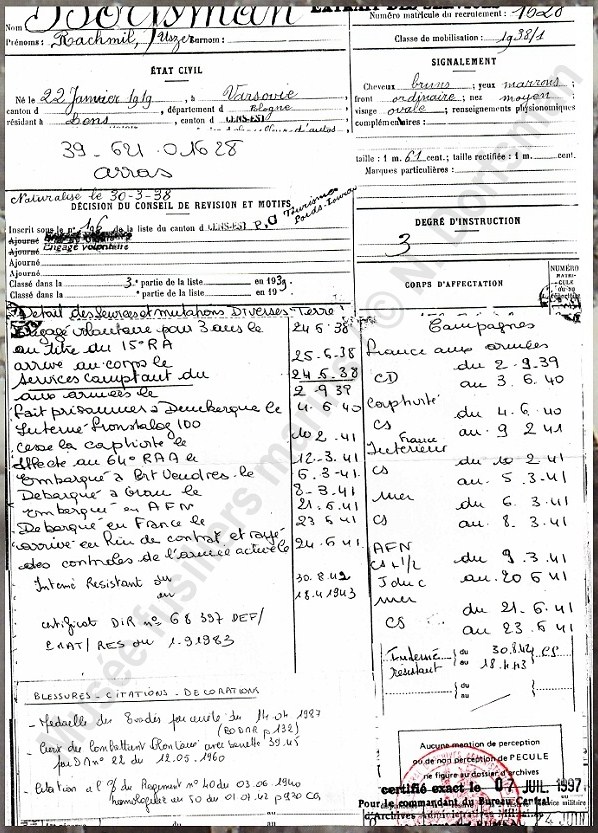 Nom Borisman
EXTRAIT DES SERVICES
Prénoms: Rachmil, Uszer Surnom:
Numéro matricule du recrutement: 1628
Classe de mobilisation: 1938/1
ÉTAT CIVIL
Né le 22 Janvier 1919, à Varsovie
canton d , département d Pologne
résidant à Lens, canton d LENS-EST
d'autos
SIGNALEMENT
Cheveux bruns; yeux marrons
front ordinaire; nez moyen
visage ovale; renseignements physionomiques
complémentaires:
taille: 1 m. 61 cent.; taille rectifiée: 1 m. cent.
Marques particulières:
39-621-01628
arras
Naturalisé le 30-3-38
DÉCISION DU CONSEIL DE REVISION ET MOTIFS
Inscrit sous le n° 196 de la liste du canton d LENS-EST
P.O Tourisme
Poids-Lourds
Ajourné
Engagé volontaire
Ajourné
Ajourné
Ajourné
Classé dans la 3e partie de la liste en 1939
Classé dans la partie de la liste en 19
DEGRÉ D'INSTRUCTION
3
CORPS D'AFFECTATION
NUMÉRO
MATRICULE
Détail des Services et mutations Diverses - Terre
Engagé volontaire pour 3 ans le 24.6.38
au titre du 15e RA
arrive au corps le 25.6.38
Services comptant du 24.6.38
aux armées le 2.9.39
Fait prisonnier à Dunkerque le 4.6.40
Interné Fronstalag 100
cesse la captivité le 10.2.41
affecté au 64e RAA le 12-3-41
Embarqué à Port Vendres le 6.3-41
Débarqué à Oran le 8-3-41
Embarqué en AFN 21.6.41
Débarqué en France le 23 6 41
arrivé en fin de contrat et rayé
des contrôles de l'armée active le 24.6.41
Interné Résistant du 30.8.42
au 18.4.1943
certificat DIR n° 68 397 DEF/
ENAT/RES du 1-9 1983
Campagnes
France aux armées
du 2-9.39
CD au 3.6.40
Captivité
du 4.6.40
CS au 9 2 41
France
Intérieur
du 10 2 41
CS au 5.3-41
mer du 6.3-41
CS au 8.3-41
AFN
CS 1/2 du 9.3.41
au 20 6 41
mer
du 21.6.41
CS au 23.6 41
Interné du 30.8.42 CS
résistant au 18.4.43
du
au
BLESSURES - CITATIONS - DECORATIONS
- Médaille des Evadés par décret du 14.04 1987
(BODMR p 132)
- Croix du Combattant Volontaire avec barrette 39.45
par DM n° 22 du 12.05.1960
- Citation à l'O/ du Régiment n° 40 du 03.06 1940
homologuée au JO du 01.07.42 p 920 CG
Aucune mention de perception
ou de non perception de PECULE
ne figure au dossier d'archives
certifié exact le 07 JUIL 1997
Pour le commandant du Bureau Central
d'Archives Administratives
Musée fusillers marins © N. Borisman